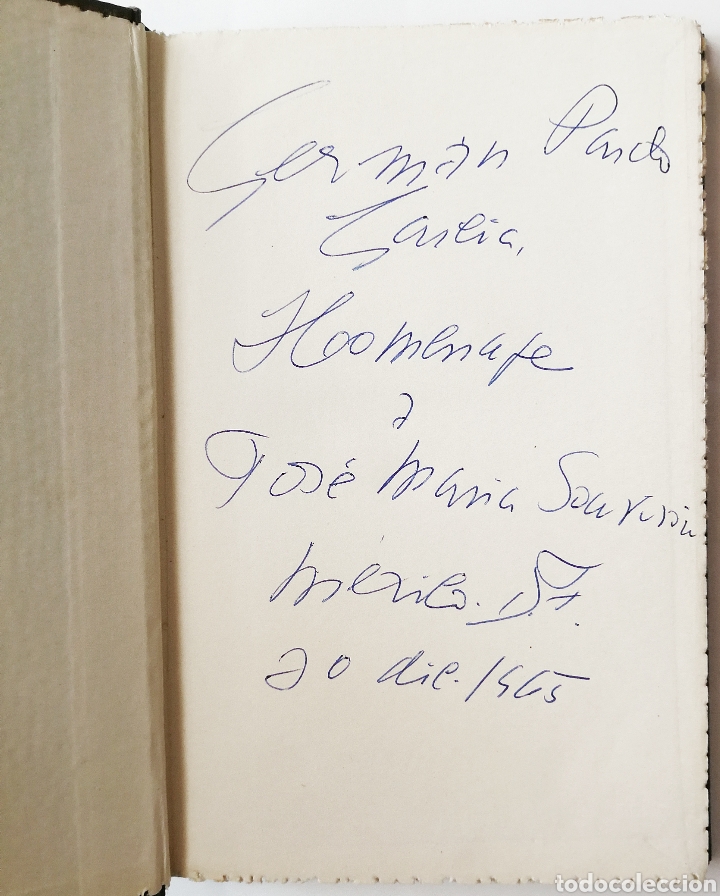 Germán Pardo
García,
Homenaje
a
José María Souvirón
México. D.F.
20 dic. 1965
todocoleccion